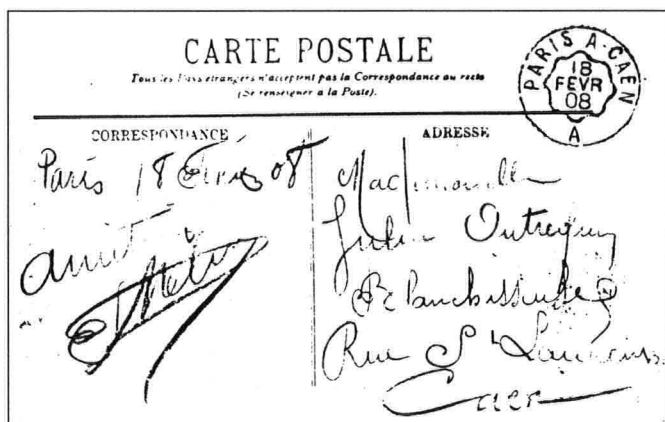 CARTE POSTALE
Tous les Pays étrangers n'acceptent pas la Correspondance au recto
(Se renseigner à la Poste).
PARIS A CAEN
18
FEVR
08
A
CORRESPONDANCE
Paris 18 08
ADRESSE
Mademoiselle
Outrequin
Blanchisseuse
Rue St Laurent
Caen